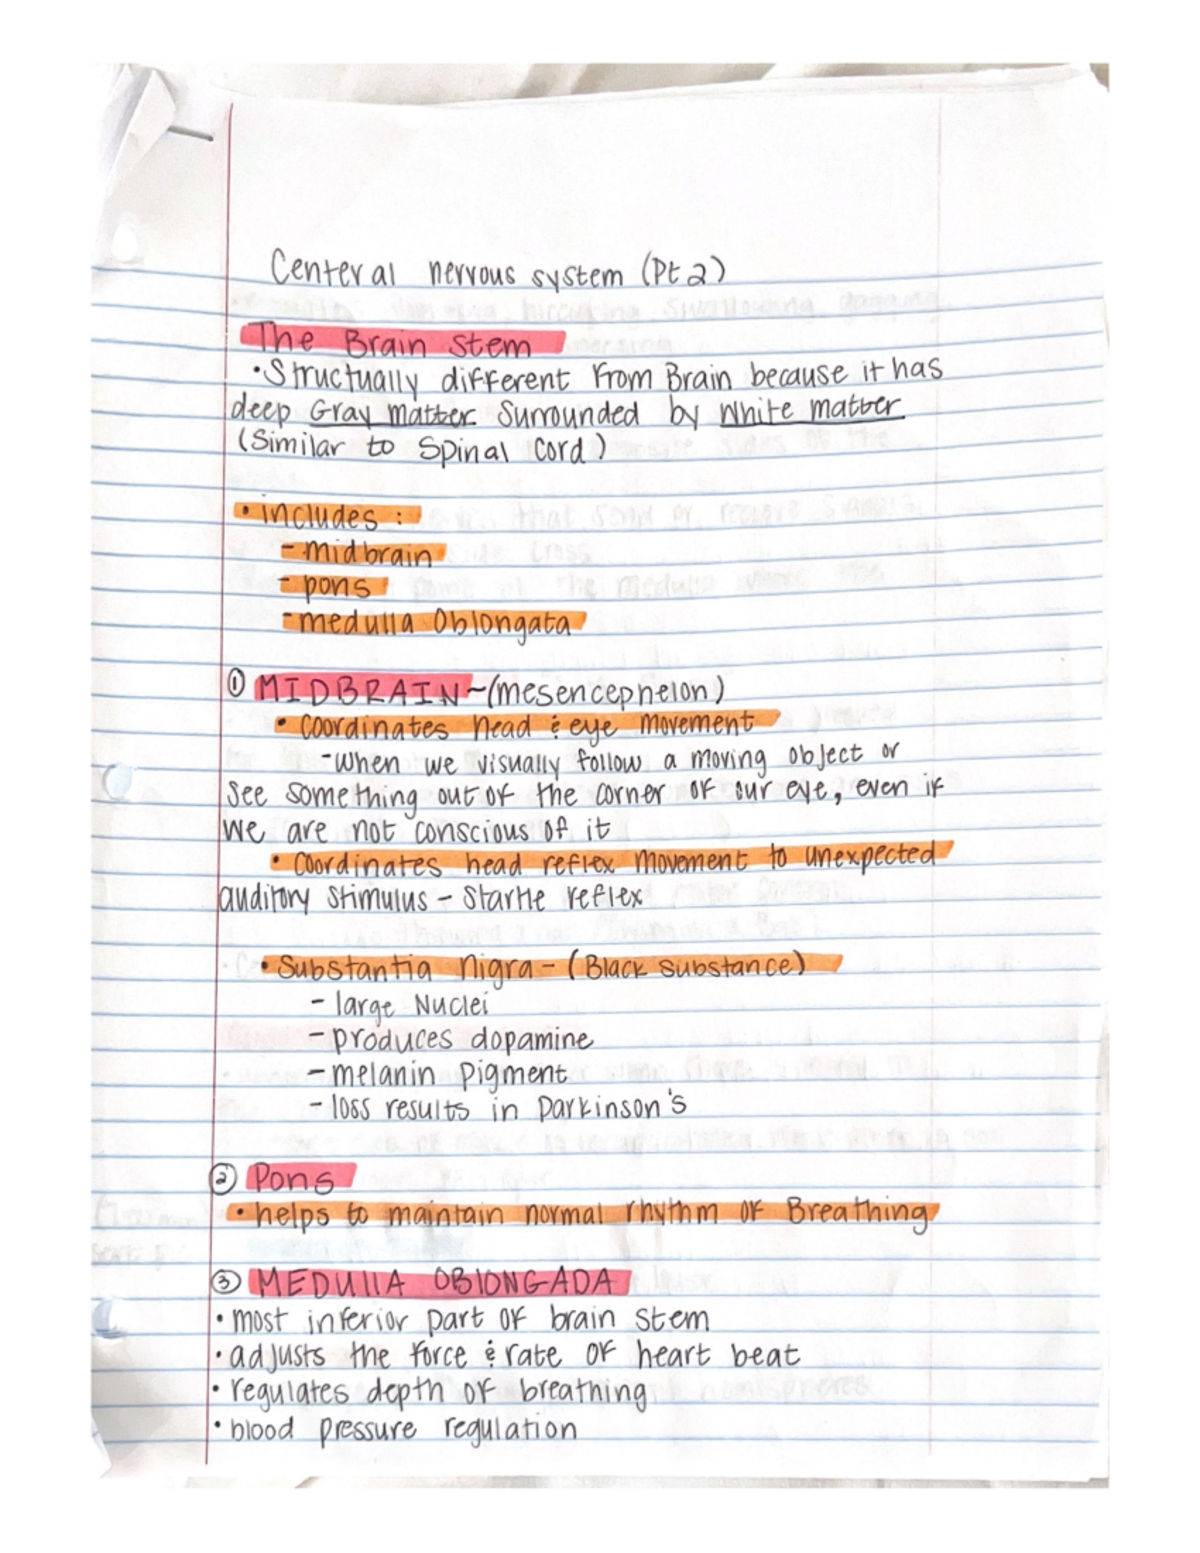 Centeral nervous system (Pt 2)
The Brain Stem
• Structually different from Brain because it has
deep Gray matter surrounded by White matter
(Similar to Spinal Cord)
• includes :
- midbrain
- pons
- medulla Oblongata
① MIDBRAIN ~ (mesencephelon)
• Coordinates head & eye movement
- when we visually follow a moving object or
see something out of the corner of our eye, even if
we are not conscious of it
• Coordinates head reflex movement to unexpected
auditory stimulus - startle reflex
• Substantia Nigra - (Black substance)
- large Nuclei
- produces dopamine
- melanin pigment
- loss results in Parkinson's
② Pons
• helps to maintain normal rhythm of Breathing
③ MEDUllA OBlONGADA
• most inferior part of brain stem
• adjusts the force & rate of heart beat
• regulates depth of breathing
• blood pressure regulation